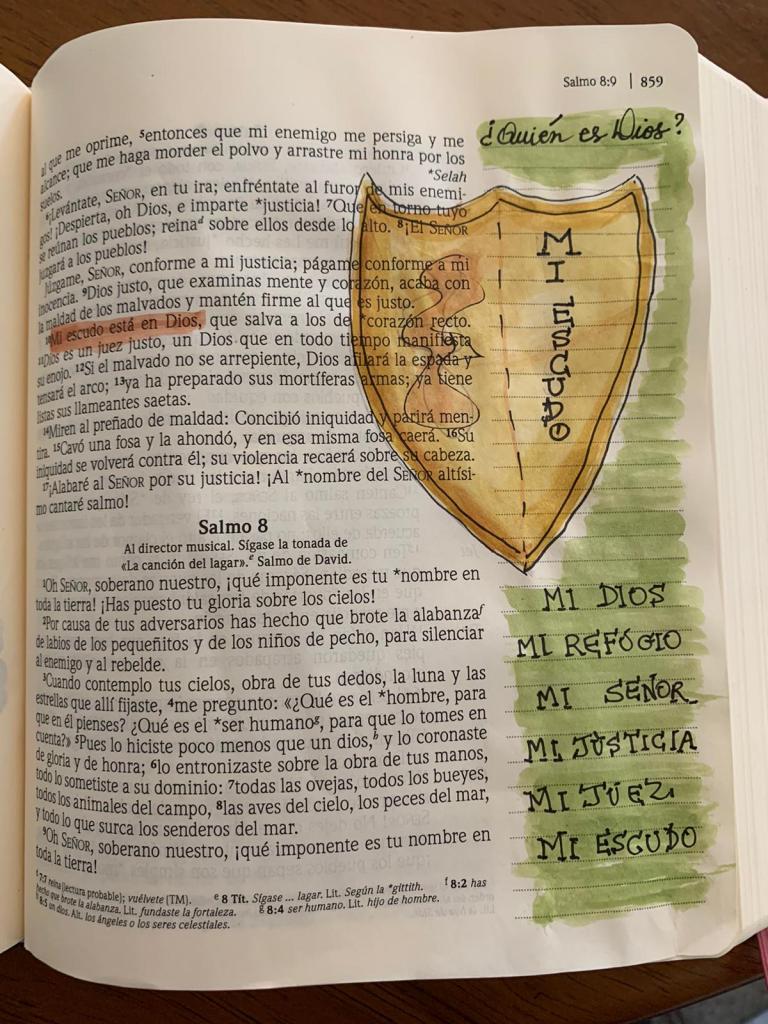 Salmo 8:9 | 859
al que me oprime, ⁵entonces que mi enemigo me persiga y me
alcance; que me haga morder el polvo y arrastre mi honra por los
suelos.
*Selah
⁶¡Levántate, SEÑOR, en tu ira; enfréntate al furor de mis enemi-
gos! ¡Despierta, oh Dios, e imparte *justicia! ⁷Que en torno tuyo
se reúnan los pueblos; reinaᵈ sobre ellos desde lo alto. ⁸¡El SEÑOR
juzgará a los pueblos!
Júzgame, SEÑOR, conforme a mi justicia; págame conforme a mi
inocencia. ⁹Dios justo, que examinas mente y corazón, acaba con
la maldad de los malvados y mantén firme al que es justo.
¹⁰Mi escudo está en Dios, que salva a los de *corazón recto.
¹¹Dios es un juez justo, un Dios que en todo tiempo manifiesta
su enojo. ¹²Si el malvado no se arrepiente, Dios afilará la espada y
tensará el arco; ¹³ya ha preparado sus mortíferas armas; ya tiene
listas sus llameantes saetas.
¹⁴Miren al preñado de maldad: Concibió iniquidad y parirá men-
tira. ¹⁵Cavó una fosa y la ahondó, y en esa misma fosa caerá. ¹⁶Su
iniquidad se volverá contra él; su violencia recaerá sobre su cabeza.
¹⁷¡Alabaré al SEÑOR por su justicia! ¡Al *nombre del SEÑOR altísi-
mo cantaré salmo!
Salmo 8
Al director musical. Sígase la tonada de
«La canción del lagar».ᵉ Salmo de David.
¹Oh SEÑOR, soberano nuestro, ¡qué imponente es tu *nombre en
toda la tierra! ¡Has puesto tu gloria sobre los cielos!
²Por causa de tus adversarios has hecho que brote la alabanzaᶠ
de labios de los pequeñitos y de los niños de pecho, para silenciar
al enemigo y al rebelde.
³Cuando contemplo tus cielos, obra de tus dedos, la luna y las
estrellas que allí fijaste, ⁴me pregunto: «¿Qué es el *hombre, para
que en él pienses? ¿Qué es el *ser humanoᵍ, para que lo tomes en
cuenta?» ⁵Pues lo hiciste poco menos que un dios,ʰ y lo coronaste
de gloria y de honra; ⁶lo entronizaste sobre la obra de tus manos,
todo lo sometiste a su dominio: ⁷todas las ovejas, todos los bueyes,
todos los animales del campo, ⁸las aves del cielo, los peces del mar,
y todo lo que surca los senderos del mar.
⁹Oh SEÑOR, soberano nuestro, ¡qué imponente es tu nombre en
toda la tierra!
7:7 reina (lectura probable); vuélvete (TM). ᵉ 8 Tít. Sígase ... lagar. Lit. Según la *gittith. ᶠ 8:2 has
hecho que brote la alabanza. Lit. fundaste la fortaleza. ᵍ 8:4 ser humano. Lit. hijo de hombre.
8:5 un dios. Alt. los ángeles o los seres celestiales.
¿Quién es Dios?
MI ESCUDO
MI DIOS
MI REFÚGIO
MI SEÑOR
MI JUSTICIA
MI JUEZ
MI ESCUDO